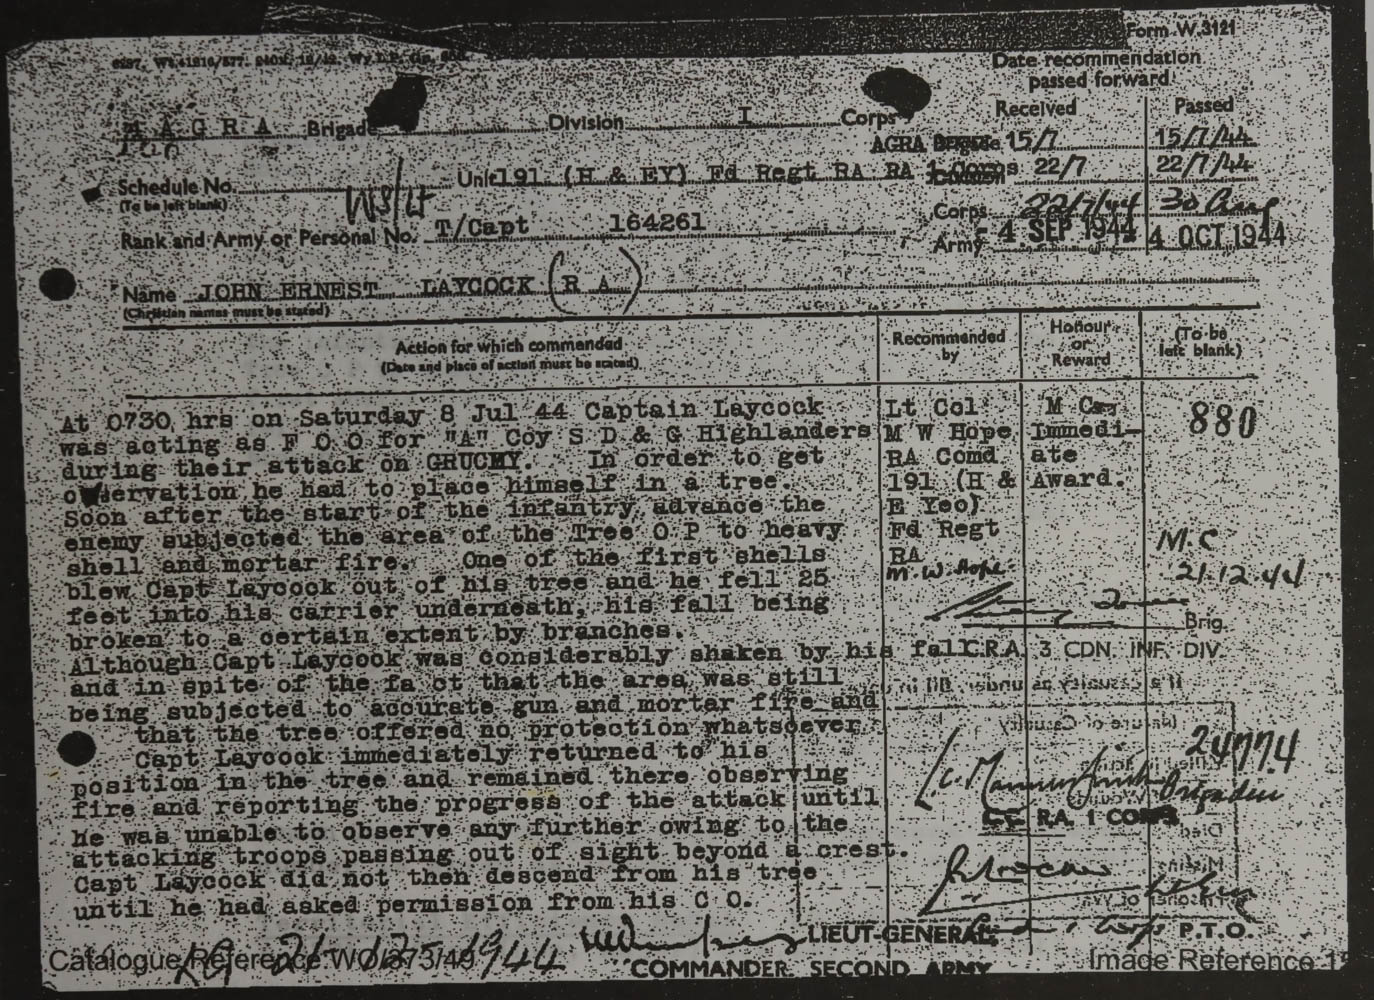 Form W.3121
Date recommendation
passed forward
Received Passed
A G R A Brigade Division I Corps
AGRA 15/7 15/7/44
Schedule No. Unit 191 (H & EY) Fd Regt RA RA 1 Corps 22/7 22/7/44
(To be left blank)
Corps 22/7/44 30 Aug
Rank and Army or Personal No. T/Capt 164261
Army 4 SEP 1944 4 OCT 1944
Name JOHN ERNEST LAYCOCK (R A)
(Christian names must be stated)
Action for which commended
(Date and place of action must be stated)
Recommended
by
Honour
or
Reward
(To be
left blank)
At 0730 hrs on Saturday 8 Jul 44 Captain Laycock
was acting as F O O for "A" Coy S D & G Highlanders
during their attack on GRUCHY. In order to get
observation he had to place himself in a tree.
Soon after the start of the infantry advance the
enemy subjected the area of the Tree O P to heavy
shell and mortar fire. One of the first shells
blew Capt Laycock out of his tree and he fell 25
feet into his carrier underneath, his fall being
broken to a certain extent by branches.
Although Capt Laycock was considerably shaken by his fall
and in spite of the fa ct that the area was still
being subjected to accurate gun and mortar fire and
that the tree offered no protection whatsoever
Capt Laycock immediately returned to his
position in the tree and remained there observing
fire and reporting the progress of the attack until
he was unable to observe any further owing to the
attacking troops passing out of sight beyond a crest.
Capt Laycock did not then descend from his tree
until he had asked permission from his C O.
Lt Col
M W Hope
RA Comd
191 (H &
E Yeo)
Fd Regt
RA
M.W. Hope.
M C
Immedi-
ate
Award.
880
M.C
21.12.44
Brig.
C.R.A. 3 CDN. INF. DIV.
24774
Brigadier
RA. 1 CORPS
LIEUT-GENERAL,
COMMANDER SECOND ARMY
P.T.O.
Catalogue Reference:WO/373/49
Image Reference:1